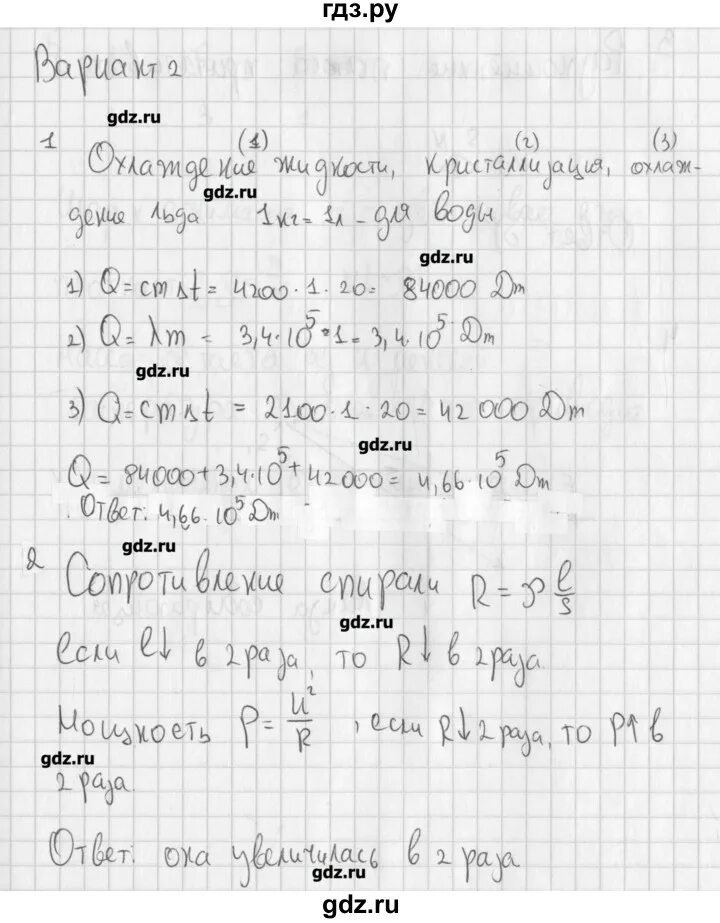 гдз.ру
Вариант 2
gdz.ru
1 (1) (2) (3)
Охлаждение жидкости, кристаллизация, охлаж-
gdz.ru
дение льда 1кг = 1л - для воды
gdz.ru
1) Q = cm∆t = 4200 · 1 · 20 = 84000 Дж
2) Q = λm = 3,4 · 10⁵ · 1 = 3,4 · 10⁵ Дж
gdz.ru
3) Q = cm∆t = 2100 · 1 · 20 = 42 000 Дж
gdz.ru
Q = 84000 + 3,4 · 10⁵ + 42000 = 4,66 · 10⁵ Дж
Ответ: 4,66 · 10⁵ Дж
gdz.ru
2 Сопротивление спирали R = ρ l/s
gdz.ru
если l↓ в 2 раза, то R↓ в 2 раза.
Мощность P = U²/R , если R↓ 2 раза, то P↑ в
gdz.ru
2 раза.
Ответ: она увеличилась в 2 раза
gdz.ru
gdz.ru